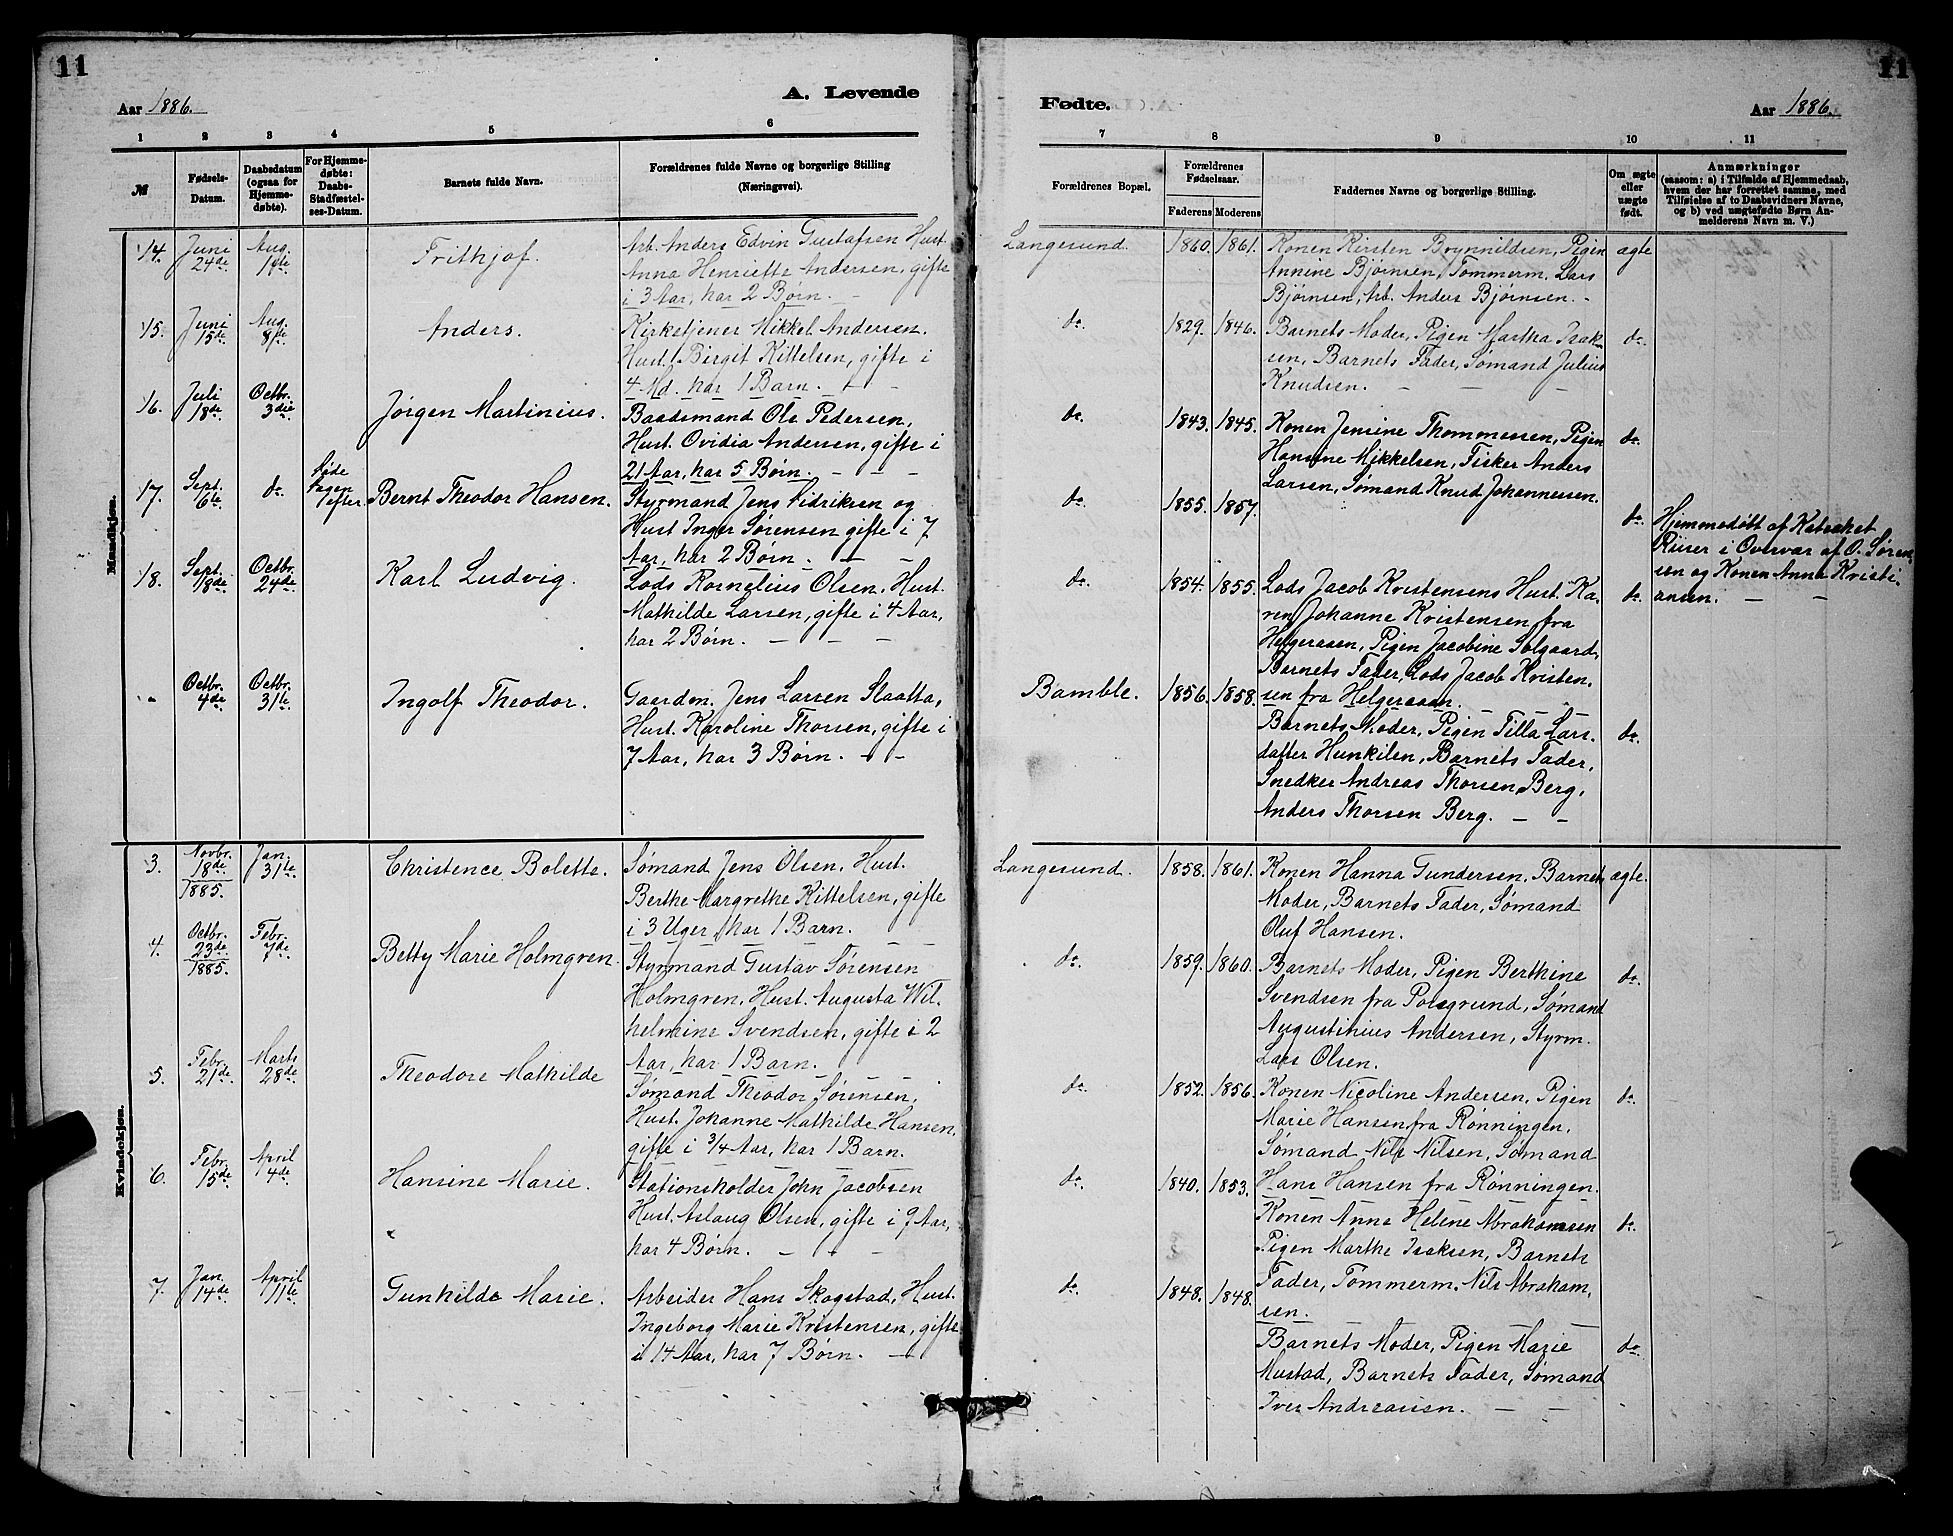 11
11
Aar 1886.
A. Levende
Fødte.
Aar 1886.
1 2 3 4 5 6 7 8 9 10 11
№
Fødsels-
Datum.
Daabsdatum
(ogsaa for
Hjemme-
døbte).
For Hjemme-
døbte:
Daabs-
Stadfæstel-
ses-Datum.
Barnets fulde Navn.
Forældrenes fulde Navne og borgerlige Stilling
(Næringsvei).
Forældrenes Bopæl.
Forældrenes
Fødselsaar.
Faderens
Moderens
Faddernes Navne og borgerlige Stilling.
Om ægte
eller
uægte
født.
Anmærkninger
(saasom: a) i Tilfælde af Hjemmedaab,
hvem der har forrettet samme, med
Tilføielse af to Daabsvidners Navne,
og b) ved uægtefødte Børn An-
melderens Navn m. V.)
Mandkjøn.
14.
Juni
24de
Aug.
1ste
Frithjof.
Arb. Anders Edvin Gustafsen Hust.
Anna Henriette Andersen, gifte
i 3 Aar, har 2 Børn. -
Langesund.
1860. 1861.
Konen Kirsten Brynnildsen, Pigen
Annine Bjørnsen, Tømmerm. Lars
Bjørnsen, Arb. Anders Bjørnsen. -
ægte
15.
Juni
15te
Aug.
8de
Anders.
Kirketjener Mikkel Andersen.
Hust. Birgit Kittelsen, gifte i
4 Md. har 1 Barn. - -
do.
1829. 1846.
Barnets Moder, Pigen Martha Isak-
sen, Barnets Fader, Sømand Julius
Knudsen. - - -
do.
16.
Juli
18de
Octbr.
3die
Jørgen Martinius.
Baadsmand Ole Pedersen,
Hust. Ovidia Andersen, gifte i
21 Aar, har 5 Børn. - - -
do.
1843. 1845.
Konen Jensine Thommesen, Pigen
Hansine Mikkelsen, Fisker Anders
Larsen, Sømand Knud Johannessen.
do.
17.
Sept.
6te
do.
efter.
Bernt Theodor Hansen.
Styrmand Jens Fidriksen og
Hust. Inger Sørensen gifte i 7
Aar, har 2 Børn. - -
do.
1855. 1857.
do.
Hjemmedøbt af Kateket
Riiser i Overvær af O. Søren-
sen og Konen Anna Kristi-
ansen. - -
18.
Sept.
18de
Octbr.
24de
Karl Ludvig.
Lods Kornelius Olsen, Hust.
Mathilde Larsen, gifte i 4 Aar,
har 2 Børn. - - -
do.
1854. 1855.
Lods Jacob Kristensens Hust. Ka-
ren Johanne Kristensen fra
Helgeraaen, Pigen Jacobine Solgaard,
Barnets Fader, Lods Jacob Kristen-
sen fra Helgeraaen. - -
do.
Octbr.
4de
Octbr.
31te
Ingolf Theodor.
Gaardm. Jens Larsen Slaatta,
Hust. Karoline Thorsen, gifte i
7 Aar, har 3 Børn. - -
Bamble.
1856. 1858.
Barnets Moder, Pigen Tilla Lars-
datter Hunkilen, Barnets Fader,
Snedker Andreas Thorsen Berg,
Anders Thorsen Berg. - -
do.
Kvindekjøn.
3.
Novbr.
18de
1885.
Jan.
31te
Christence Bolette.
Sømand Jens Olsen, Hust.
Berthe Margrethe Kittelsen, gifte
i 3 Uger, har 1 Barn.
Langesund.
1858. 1861.
Konen Hanna Gundersen, Barnets
Moder, Barnets Fader, Sømand
Oluf Hansen.
ægte.
4.
Octbr.
23de
1885.
Febr.
7de
Betty Marie Holmgren.
Styrmand Gustav Sørensen
Holmgren, Hust. Augusta Wil-
helmine Svendsen, gifte i 2
Aar, har 1 Barn.
do.
1859. 1860.
Barnets Moder, Pigen Berthine
Svendsen fra Porsgrund, Sømand
Augustinius Andersen, Styrm.
Lars Olsen.
do.
5.
Febr.
21de
Marts
28de
Theodore Mathilde
Sømand Theodor Sørensen,
Hust. Johanne Mathilde Hansen,
gifte i 3/4 Aar, har 1 Barn.
do.
1852. 1856.
Konen Nicoline Andersen, Pigen
Marie Hansen fra Rønningen,
Sømand Nils Nilsen, Sømand
Hans Hansen fra Rønningen.
do.
6.
Febr.
15de
April
4de
Hansine Marie.
Stationsholder John Jacobsen
Hust. Aslaug Olsen, gifte i 9 Aar,
har 4 Børn. - - -
do.
1840. 1853.
Konen Anne Helene Abrahamsen
Pigen Marthe Isaksen, Barnets
Fader, Tømmerm. Nils Abraham-
sen.
do.
7.
Jan.
14de
April
11te
Gunhilde Marie.
Arbeider Hans Skogstad, Hust.
Ingeborg Marie Kristensen, gifte
i 14 Aar, har 7 Børn. -
do.
1848. 1848.
Barnets Moder, Pigen Marie
Mustad, Barnets Fader, Sømand
Iver Andreasen. - -
do.